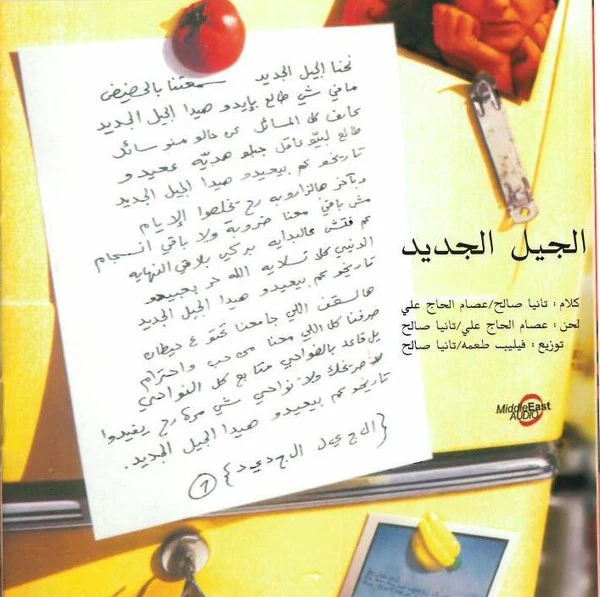 نحنا الجيل الجديد سمعتنا بالحضيض
ما في شي طالع بإيدو هيدا الجيل الجديد
عايف كل المسائل عن حالو منو سائل
طالع لبيّو ناقل جبلو هديّة عيدو
تاريخو عم بيعيدو هيدا الجيل الجديد
وبآخر هالزاروبه رح تخلصوا الإيام
مش باقي معنا ضروبة ولا باقي انسجام
عم فتش عالبدايه بركي بلاقي النهايه
الدنيي كلا تسلايه الله حر بعبيدو
تاريخو عم بيعيدو هيدا الجيل الجديد
هالسقف اللي جامعنا تحتو ٤ حيطان
صرفنا كل اللي معنا من حب واحترام
يل قاعد بالضواحي متابع كل النواحي
لا صريخك ولا نواحي شي مرة رح يفيدوا
تاريخو عم بيعيدو هيدا الجيل الجديد.
{الجيل الجديد}
1
الجيل الجديد
كلام : تانيا صالح/عصام الحاج علي
لحن : عصام الحاج علي/تانيا صالح
توزيع : فيليب طعمه/تانيا صالح
MiddleEast
AUDIO